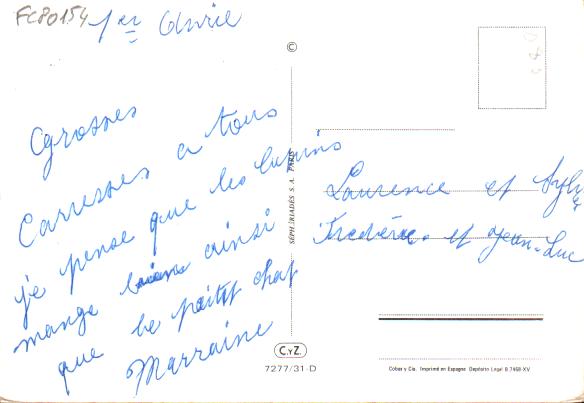 FC80154
1er Avril
Grosses
Carresses a tous
je pense que les lapins
mange biens ainsi
que le petit chat
Marraine
©
SÉPHERIADÈS S. A. PARIS
Laurence et Sylvie
Frédéric et Jean-Luc
C.Y.Z.
7277/31-D
Cobas y Cia. Imprimé en Espagne Depósito Legal B 7468-XV